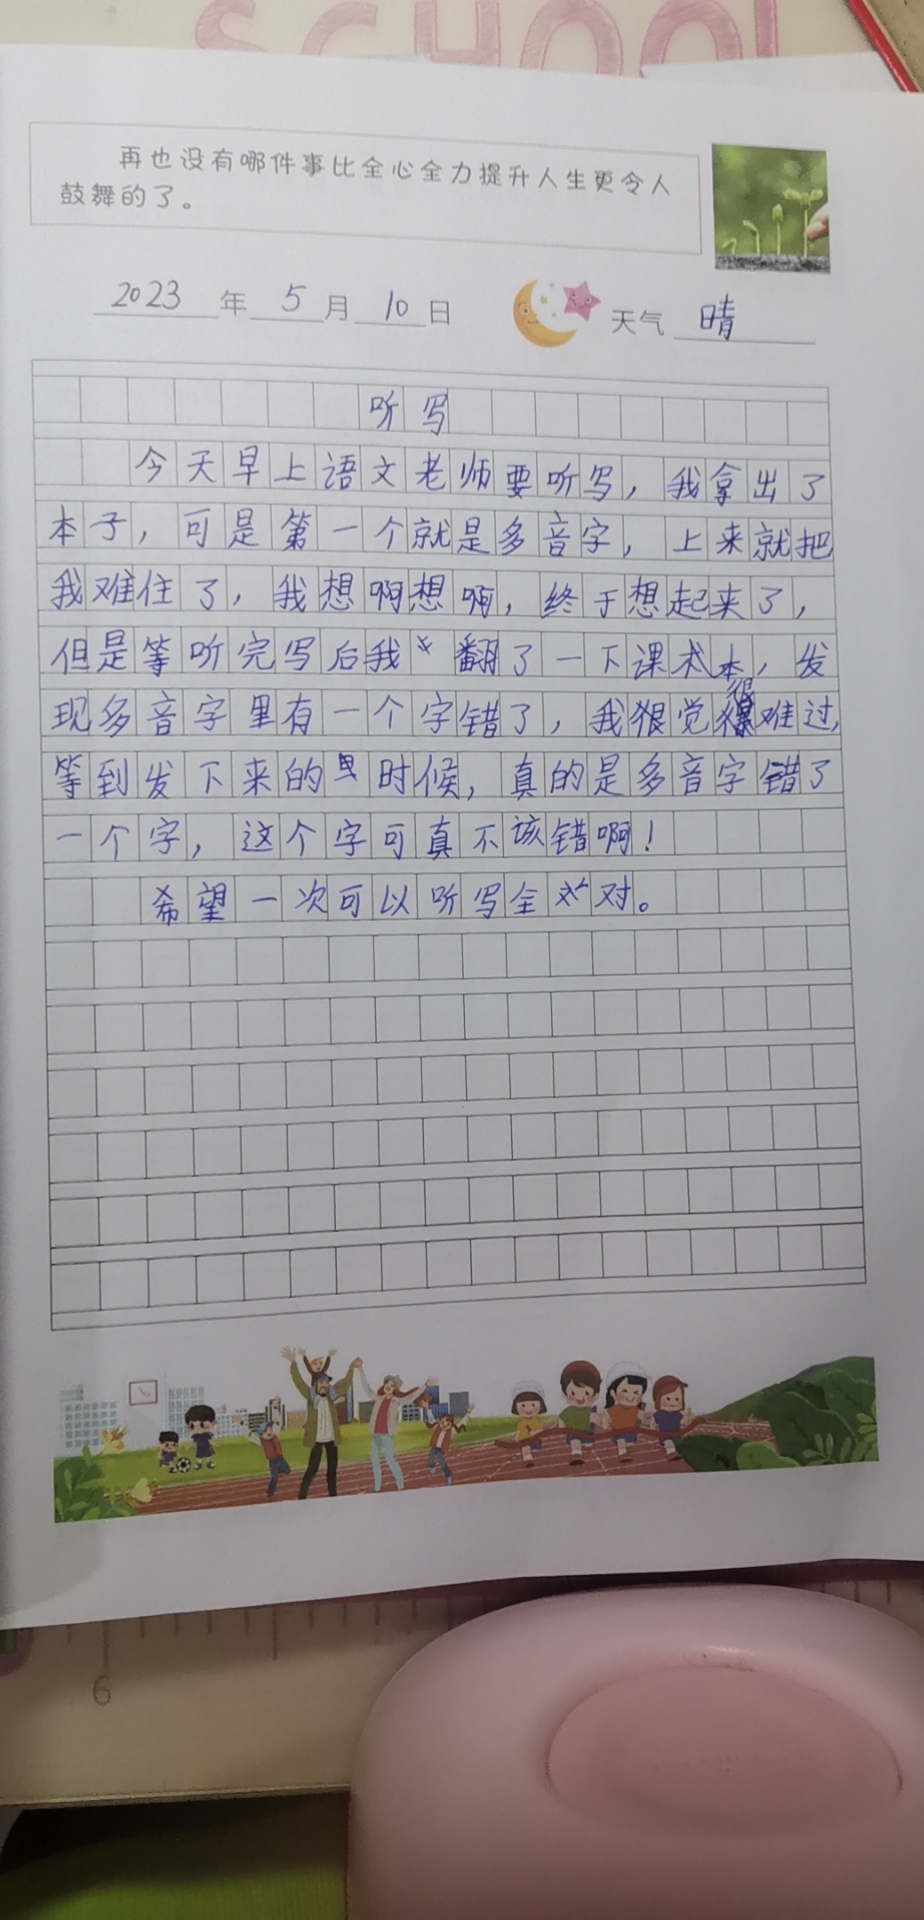 SCHOOL
再也没有哪件事比全心全力提升人生更令人
鼓舞的了。
2023年5月10日 天气 晴
听写
今天早上语文老师要听写，我拿出了
本子，可是第一个就是多音字，上来就把
我难住了，我想啊想啊，终于想起来了，
但是等听完写后我翻了一下课术本，发
现多音字里有一个字错了，我狠觉很难过，
等到发下来的时候，真的是多音字错了
一个字，这个字可真不该错啊！
希望一次可以听写全对。
6